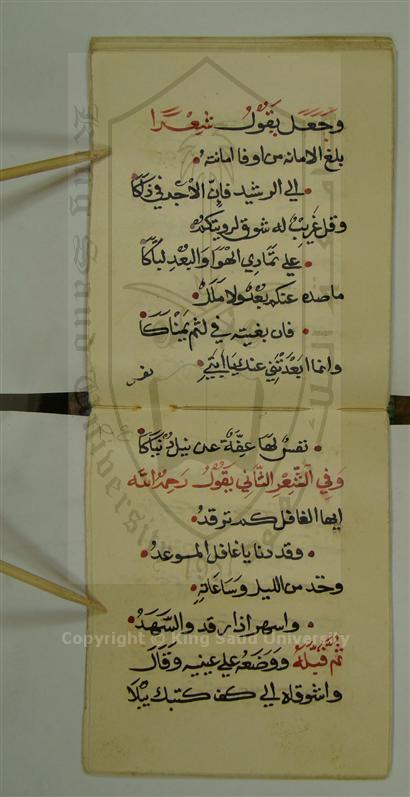 وجعل يقول شعرا
بلغ الامانه من اوفا امانته
الي الرشيد فان الاجر في ذلكا
وقل غريب له شوق لرويتكم
علي تمادي الهوا والبعد لباكا
ما صده عنكم بعد ولا ملل
فان بغيته في لثم يمناكا
وانما ابعدتني عنك يا ابتي
نفس
نفس لها عفة عن نيل دنياكا
وفي الشعر الثاني يقول رحمه الله
ايها الغافل كم ترقد
وقد دنا يا غافل الموعد
وخد من الليل وساعاته
واسهر اذا رقد والسهد
ثم قبله ووضعه علي عينيه وقال
واشوقاه الي كف كتبك يبلا
King Saud University
Copyright © King Saud University